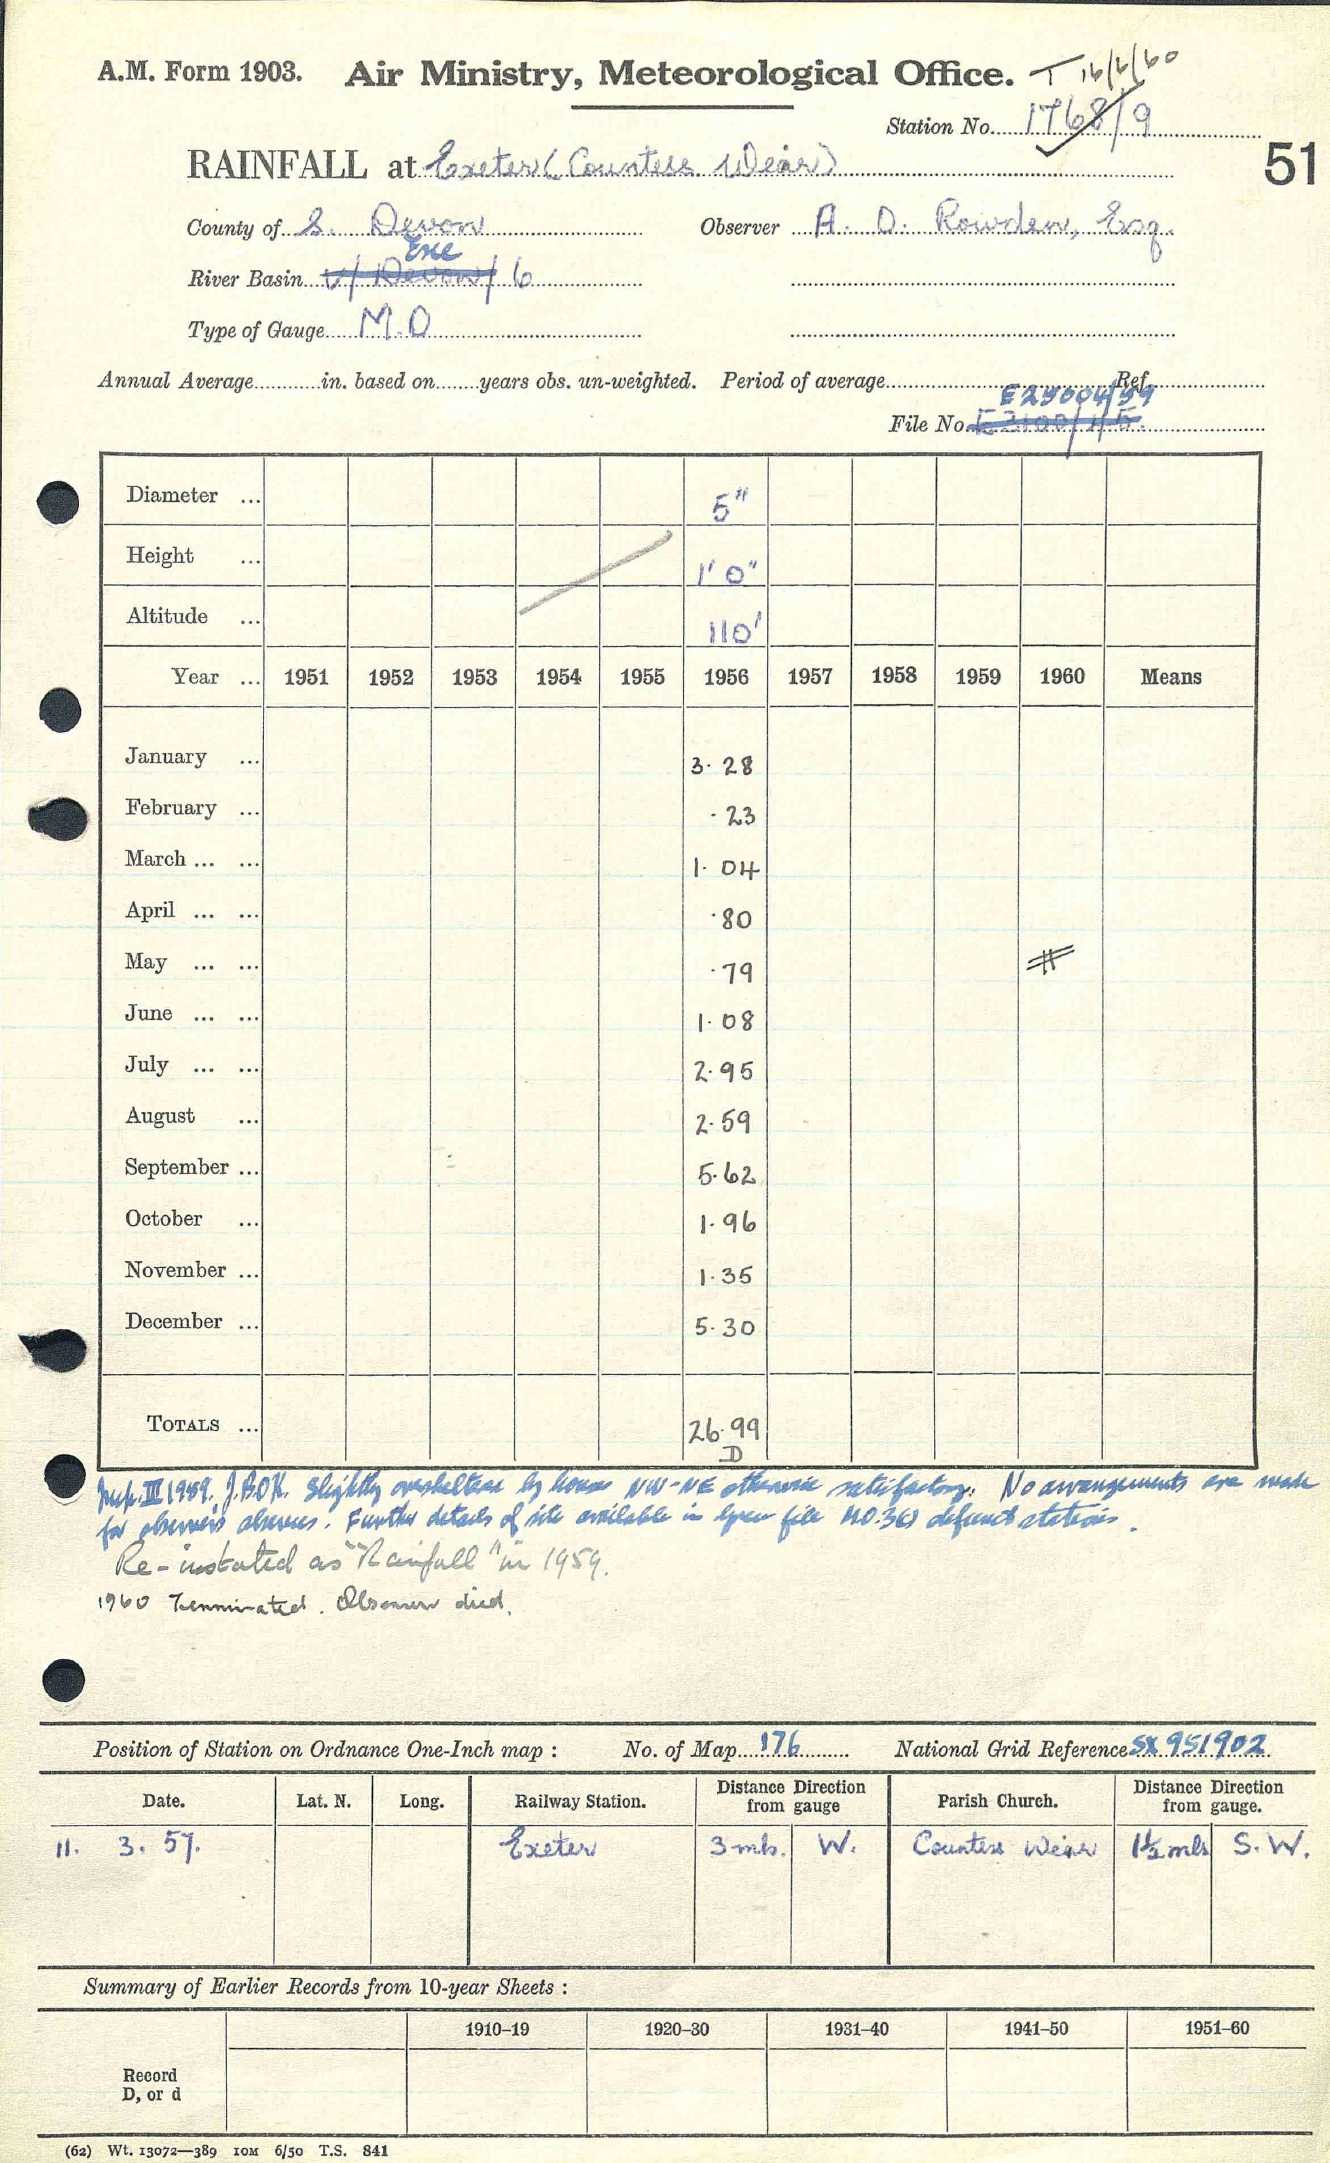 A.M. Form 1903. Air Ministry, Meteorological Office. T 16/6/60
Station No. 1768/9
51
RAINFALL at Exeter (Countess Wear)
County of S. Devon Observer A. D. Rowden, Esq.
Exe
River Basin V/Devon/6
Type of Gauge M.O
Annual Average in. based on years obs. un-weighted. Period of average Ref.
E25004/59
File No.
Diameter ... 5"
Height ... 1' 0"
Altitude ... 110'
Year ... 1951 1952 1953 1954 1955 1956 1957 1958 1959 1960 Means
January ... 3.28
February ... .23
March ... ... 1.04
April ... ... .80
May ... ... .79
June ... ... 1.08
July ... ... 2.95
August ... 2.59
September ... 5.62
October ... 1.96
November ... 1.35
December ... 5.30
TOTALS ... 26.99
D
Insp. III 1959. Slightly oversheltered by house NW-NE otherwise satisfactory. No arrangements are made
for observer's absences. Further details of site available in green file M.O.3(c) defunct stations.
Re-instated as "Rainfall" in 1959.
1960 Terminated. Observer died.
Position of Station on Ordnance One-Inch map : No. of Map 176 National Grid Reference SX 951902
Date. Lat. N. Long. Railway Station. Distance Direction from gauge Parish Church. Distance Direction from gauge.
11. 3. 57. Exeter 3 mls. W. Countess Wear 1½ mls S.W.
Summary of Earlier Records from 10-year Sheets :
1910–19 1920–30 1931–40 1941–50 1951–60
Record
D, or d
(62) Wt. 13072—389 10M 6/50 T.S. 841